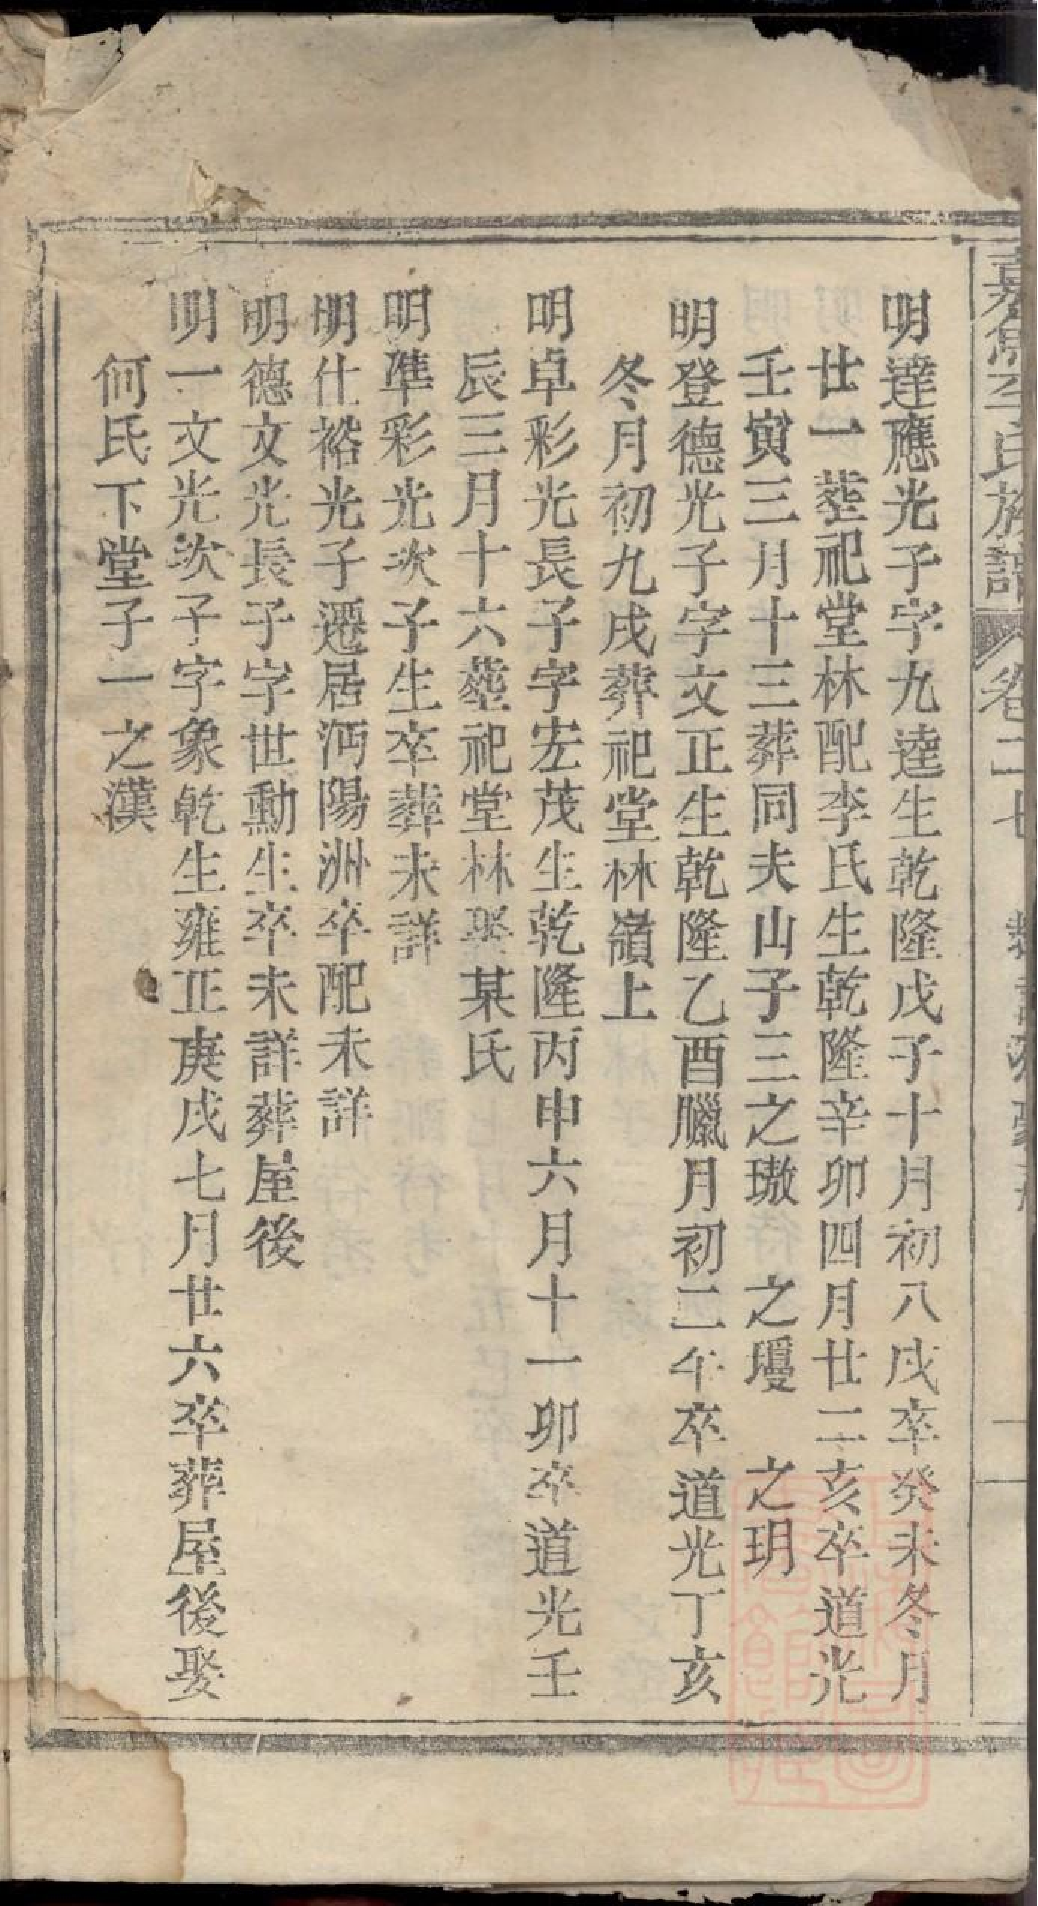 嘉魚李氏族譜 卷二七
明達應光子字九達生乾隆戊子十月初八戌卒癸未冬月
廿一塟祀堂林配李氏生乾隆辛卯四月廿二亥卒道光
壬寅三月十三葬同夫山子三之璈 之璦 之玥
明登德光子字文正生乾隆乙酉臘月初二午卒道光丁亥
冬月初九戌葬祀堂林嶺上
明卓彩光長子字宏茂生乾隆丙申六月十一卯卒道光壬
辰三月十六塟祀堂林娶某氏
明準彩光次子生卒葬未詳
明仕裕光子遷居沔陽洲卒配未詳
明德文光長子字世勳生卒未詳葬屋後
明一文光次子字象乾生雍正庚戌七月廿六卒葬屋後娶
何氏下堂子一之漢